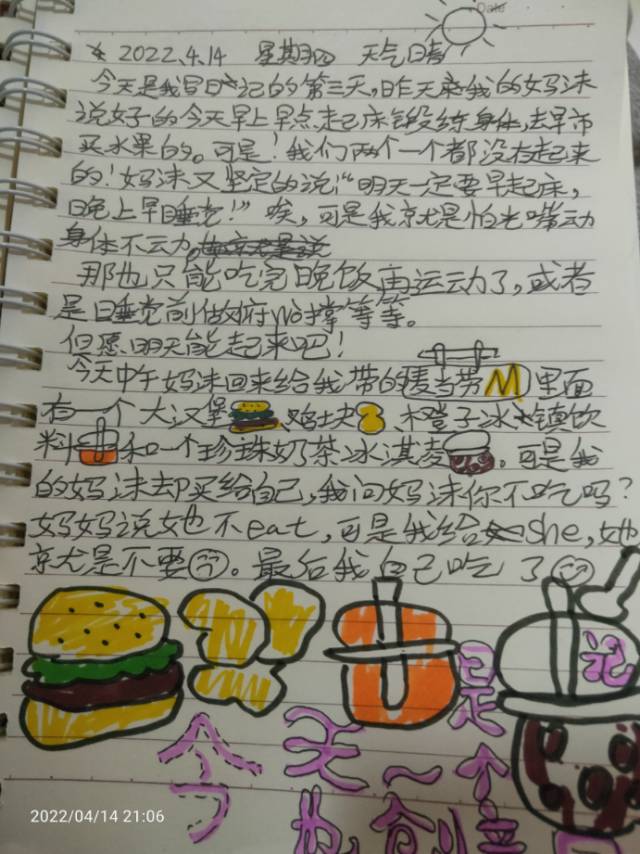 Date
2022.4.14 星期四 天气晴
今天是我写日记的第三天,昨天和我的妈沫
说好的今天早上早点起床锻练身体,去早市
买水果的。可是!我们两个一个都没有起来
的!妈沫又坚定的说!"明天一定要早起床,
晚上早睡觉!"唉,可是我就是怕光嘴动
身体不动
那也只能吃完晚饭再运动了,或者
是睡觉前做俯wo撑等等。
但愿明天能起来吧!
今天中午妈沫回来给我带的麦当劳M里面
有一个大汉堡、鸡块、橙子冰镇饮
料和一个珍珠奶茶冰淇凌。可是我
的妈沫却买给自己,我问妈沫你不吃吗?
妈妈说她不eat,可是我给she,她
就是不要。最后我自己吃了
今天是个
也
记
2022/04/14 21:06